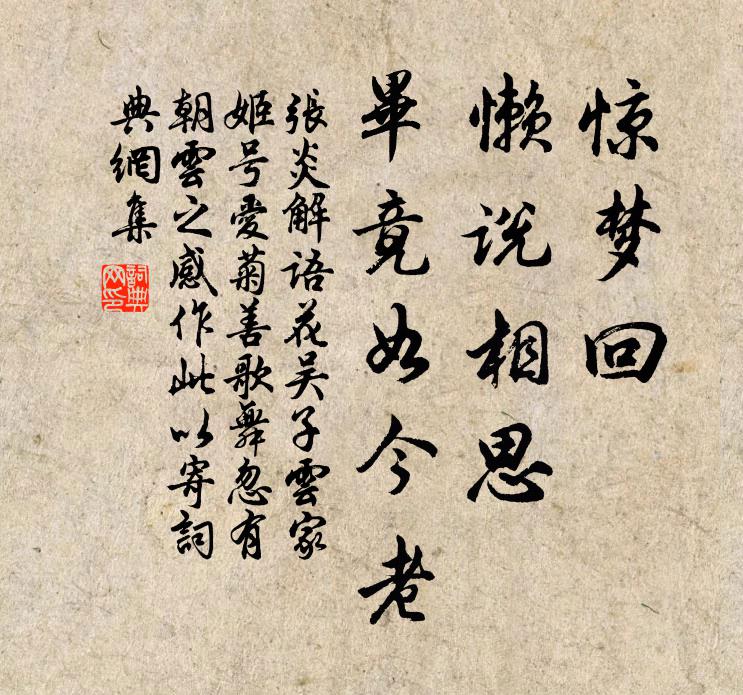 惊梦回
懒说相思
畢竟如今老
張炎解語花吴子雲家
姬号愛菊善歌舞忽有
朝雲之感作此以寄詞
典網集
詞典網印